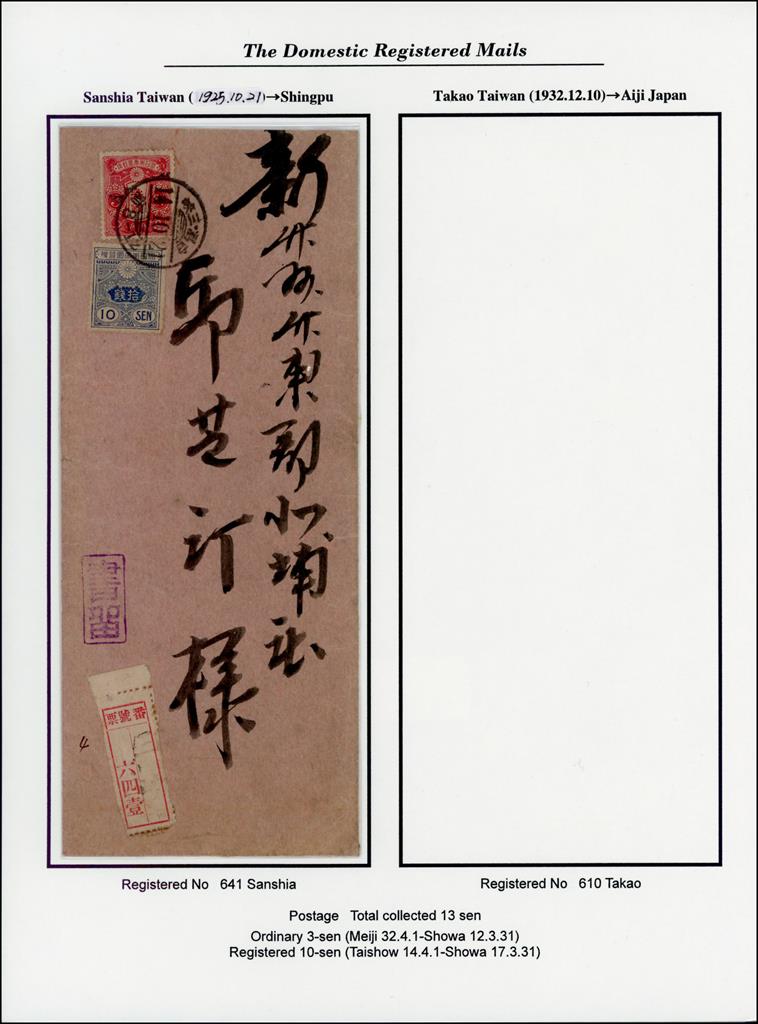 The Domestic Registered Mails
Sanshia Taiwan (1925.10.21)→Shingpu
Takao Taiwan (1932.12.10)→Aiji Japan
新竹州竹東郡北埔庄
邱芝汀樣
拾錢
10 SEN
14.10.21
書留
番號票
六四壹
4
Registered No 641 Sanshia
Registered No 610 Takao
Postage Total collected 13 sen
Ordinary 3-sen (Meiji 32.4.1-Showa 12.3.31)
Registered 10-sen (Taishow 14.4.1-Showa 17.3.31)